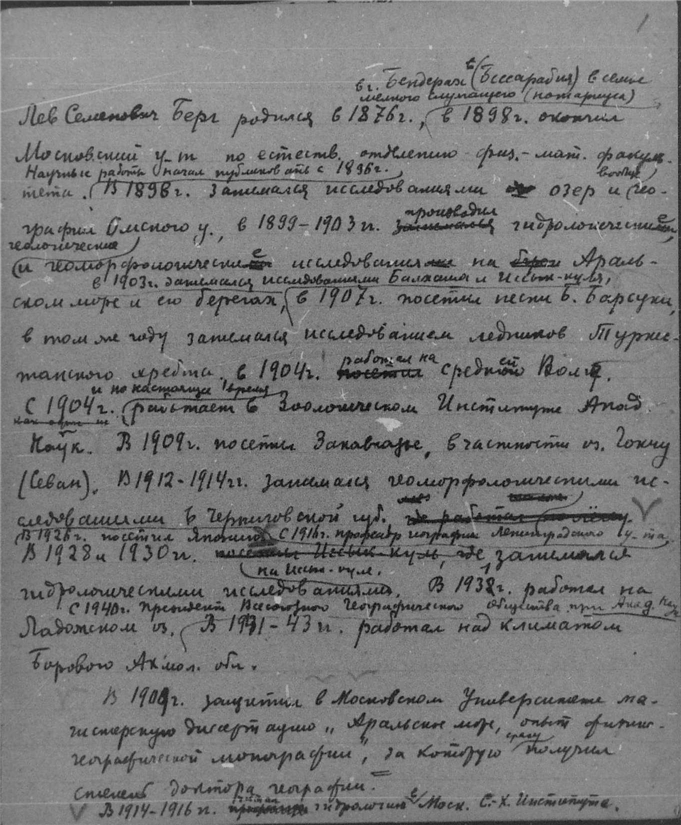 1
в г. Бендерах (Бессарабия) в семье
мелкого служащего (нотариуса)
Лев Семенович Берг родился в 1876 г., в 1898 г. окончил
Московский у-т по естеств. отделению физ.-мат. факуль-
Научные работы начал публиковать с 1896 г.
тета. В 1898 г. занимался исследованиями озер и гео-
графии Омского у., в 1899-1903 гг. производил гидрологические,
геологические
и геоморфологические исследования на Араль-
в 1903 г. занимался исследованиями Балхаша и Иссык-куля,
ском море и его берегах, в 1907 г. посетил пески Б. Барсуки,
в том же году занимался исследованием ледников Турке-
станского хребта, в 1904 г. работал на средней Волге.
и по настоящее время
С 1904 г. работает в Зоологическом Институте Акад.
Наук. В 1909 г. посетил Закавказье, в частности оз. Гокчу
(Севан). В 1912-1914 гг. занимался геоморфологическими ис-
следованиями в Черниговской губ.
В 1926 г. посетил Японию. С 1916 г. профессор географии Ленинградского у-та.
В 1928 и 1930 гг. занимался
на Иссык-куле.
гидрологическими исследованиями. В 1931 г. работал на
С 1940 г. президент Всесоюзного Географического Общества при Акад. Наук
Ладожском оз. В 1941-43 гг. работал над климатом
Борового Акмол. обл.
В 1909 г. защитил в Московском Университете ма-
гистерскую диссертацию „Аральское море, опыт физико-
географической монографии", за которую сразу получил
степень доктора географии.
В 1914-1916 гг. читал гидрологию в Моск. С.-Х. Институте.